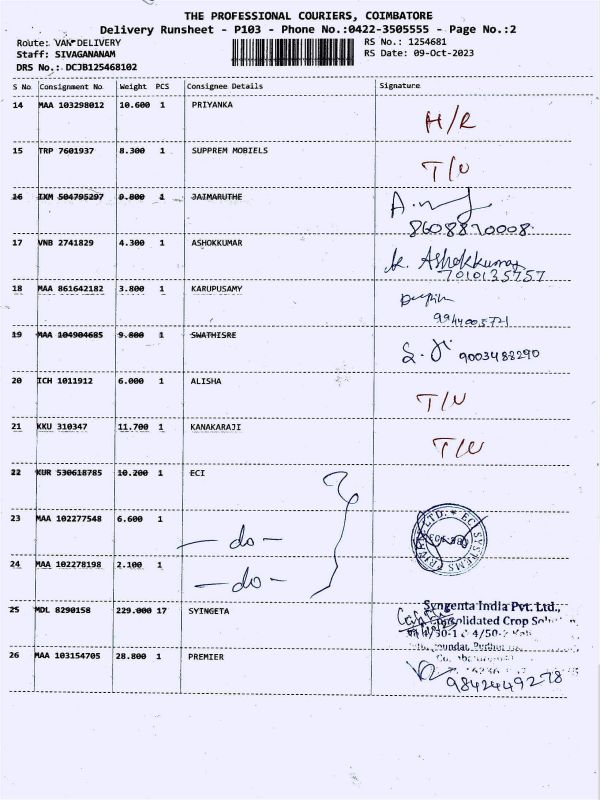 THE PROFESSIONAL COURIERS, COIMBATORE
Delivery Runsheet - P103 - Phone No.:0422-3505555 - Page No.:2
Route: VAN DELIVERY RS No.: 1254681
Staff: SIVAGANANAM RS Date: 09-Oct-2023
DRS No.: DCJB125468102
S No Consignment No Weight PCS Consignee Details Signature
14 MAA 103298012 10.600 1 PRIYANKA H/R
15 TRP 7601937 8.300 1 SUPPREM MOBIELS T/U
16 IXM 504795297 9.800 1 JAIMARUTHE
8608870008
17 VNB 2741829 4.300 1 ASHOKKUMAR K. Ashokkumar
7010135757
18 MAA 861642182 3.800 1 KARUPUSAMY
9944003721
19 MAA 104904685 9.800 1 SWATHISRE 9003488290
20 ICH 1011912 6.000 1 ALISHA T/U
21 KKU 310347 11.700 1 KANAKARAJI T/U
22 KUR 530618785 10.200 1 ECI
23 MAA 102277548 6.600 1 -do-
24 MAA 102278198 2.100 1 -do-
25 MDL 8290158 229.000 17 SYINGETA Syngenta India Pvt. Ltd.,
26 MAA 103154705 28.800 1 PREMIER
9842449278